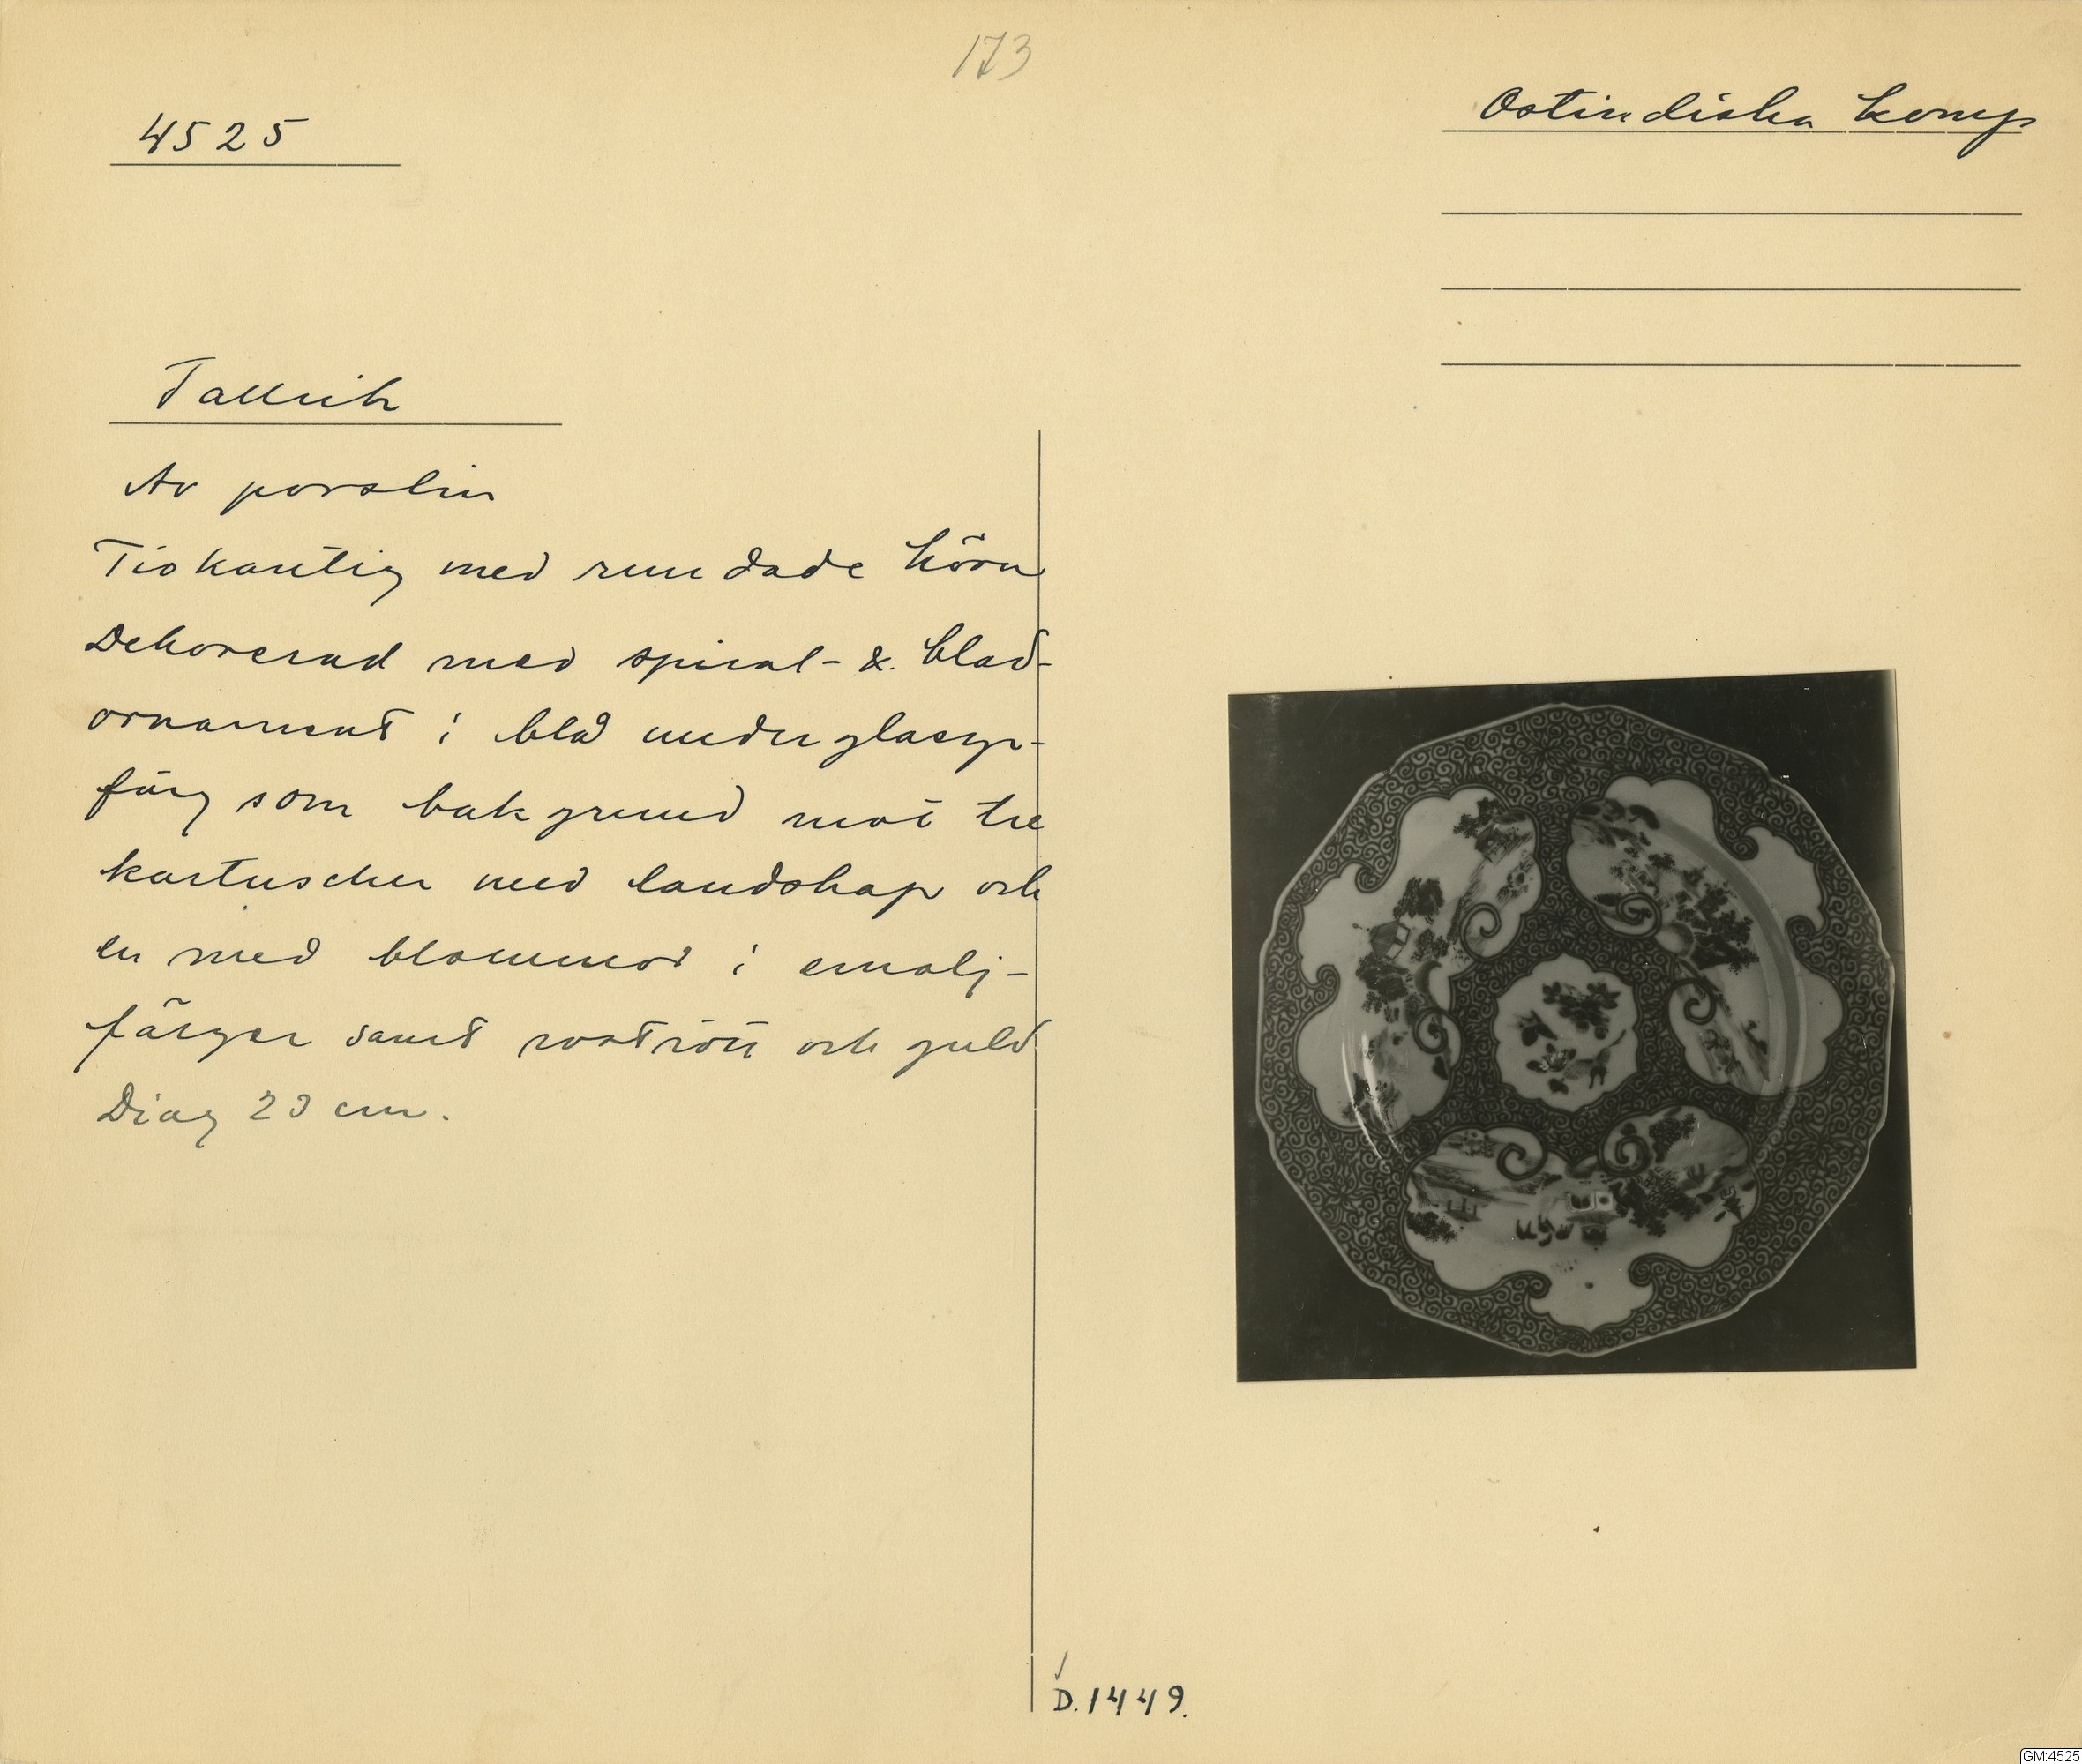 173
4525
Ostindiska komp
Tallrik
Av porslin
Tiokantig med rundade hörn
Dekorerad med spiral- & blad-
ornament i blå underglasyr-
färg som bakgrund mot tre
kartuscher med landskap och
en med blommor i emalj-
färger samt rostrött och guld
Diag 23 cm.
D.1449.
GM:4525